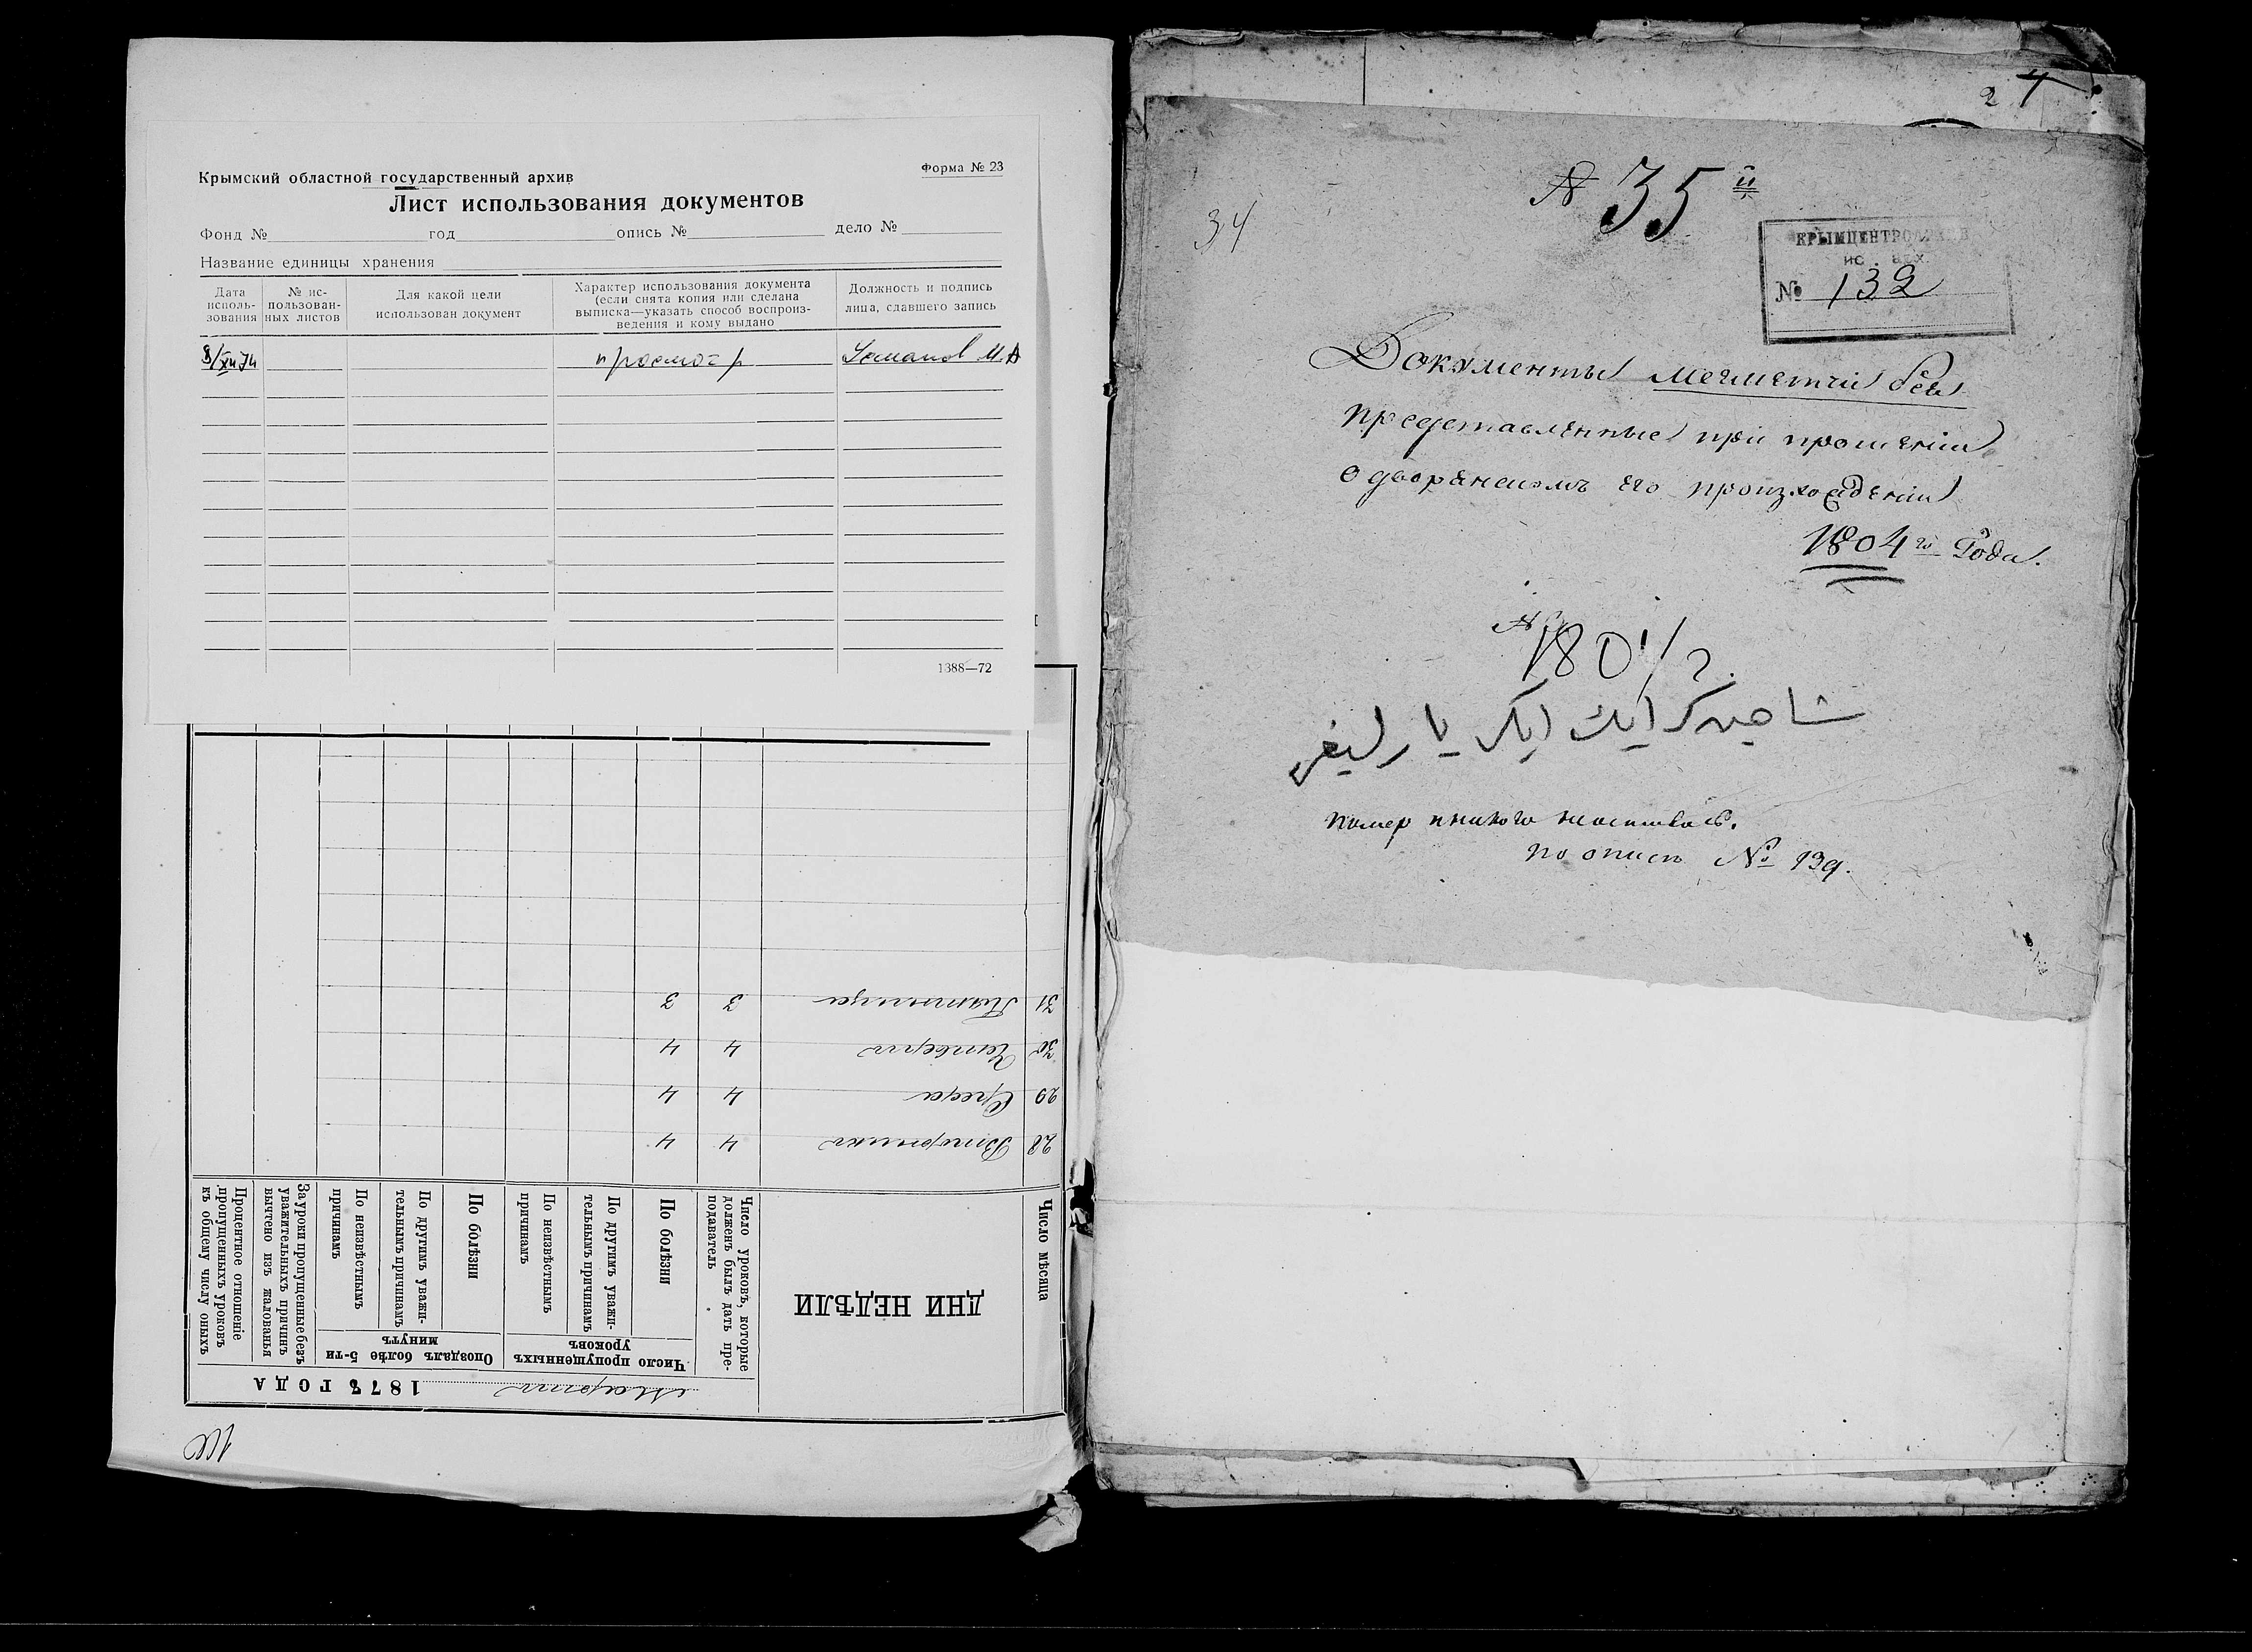 Крымский областной государственный архив
Форма № 23
Лист использования документов
Фонд № год опись № дело №
Название единицы хранения
Дата исполь-зования
№ ис-пользован-ных листов
Для какой цели использован документ
Характер использования документа (если снята копия или сделана выписка—указать способ воспроиз-ведения и кому выдано
Должность и подпись лица, сдавшего запись
8/XII 74 просмотр Усманов М.А
1388—72
1873 ГОДА
Мартъ
Число мѣсяца
ДНИ НЕДѢЛИ
Число уроковъ, которые долженъ былъ дать пре-подаватель
Число пропущенныхъ уроковъ
По болѣзни
По другимъ уважи-тельнымъ причинамъ
По неизвѣстнымъ причинамъ
Опоздалъ болѣе 5-ти минутъ
По болѣзни
По другимъ уважи-тельнымъ причинамъ
По неизвѣстнымъ причинамъ
За уроки пропущенные безъ уважительныхъ причинъ вычтено изъ жалованья
Процентное отношеніе пропущенныхъ уроковъ къ общему числу оныхъ
28 Вторникъ 4 4
29 Среда 4 4
30 Четвергъ 4 4
31 Пятница 3 3
2
34
№ 35й
КРЫМЦЕНТРАРХИВ
ис. арх.
№ 132
Документы мегметчи бея
представленные при прошеніи
о дворянскомъ его происхожденіи
1804го Года.
1804 г.
شاهين كرايك ايكى يارليغى
по описи № 139.